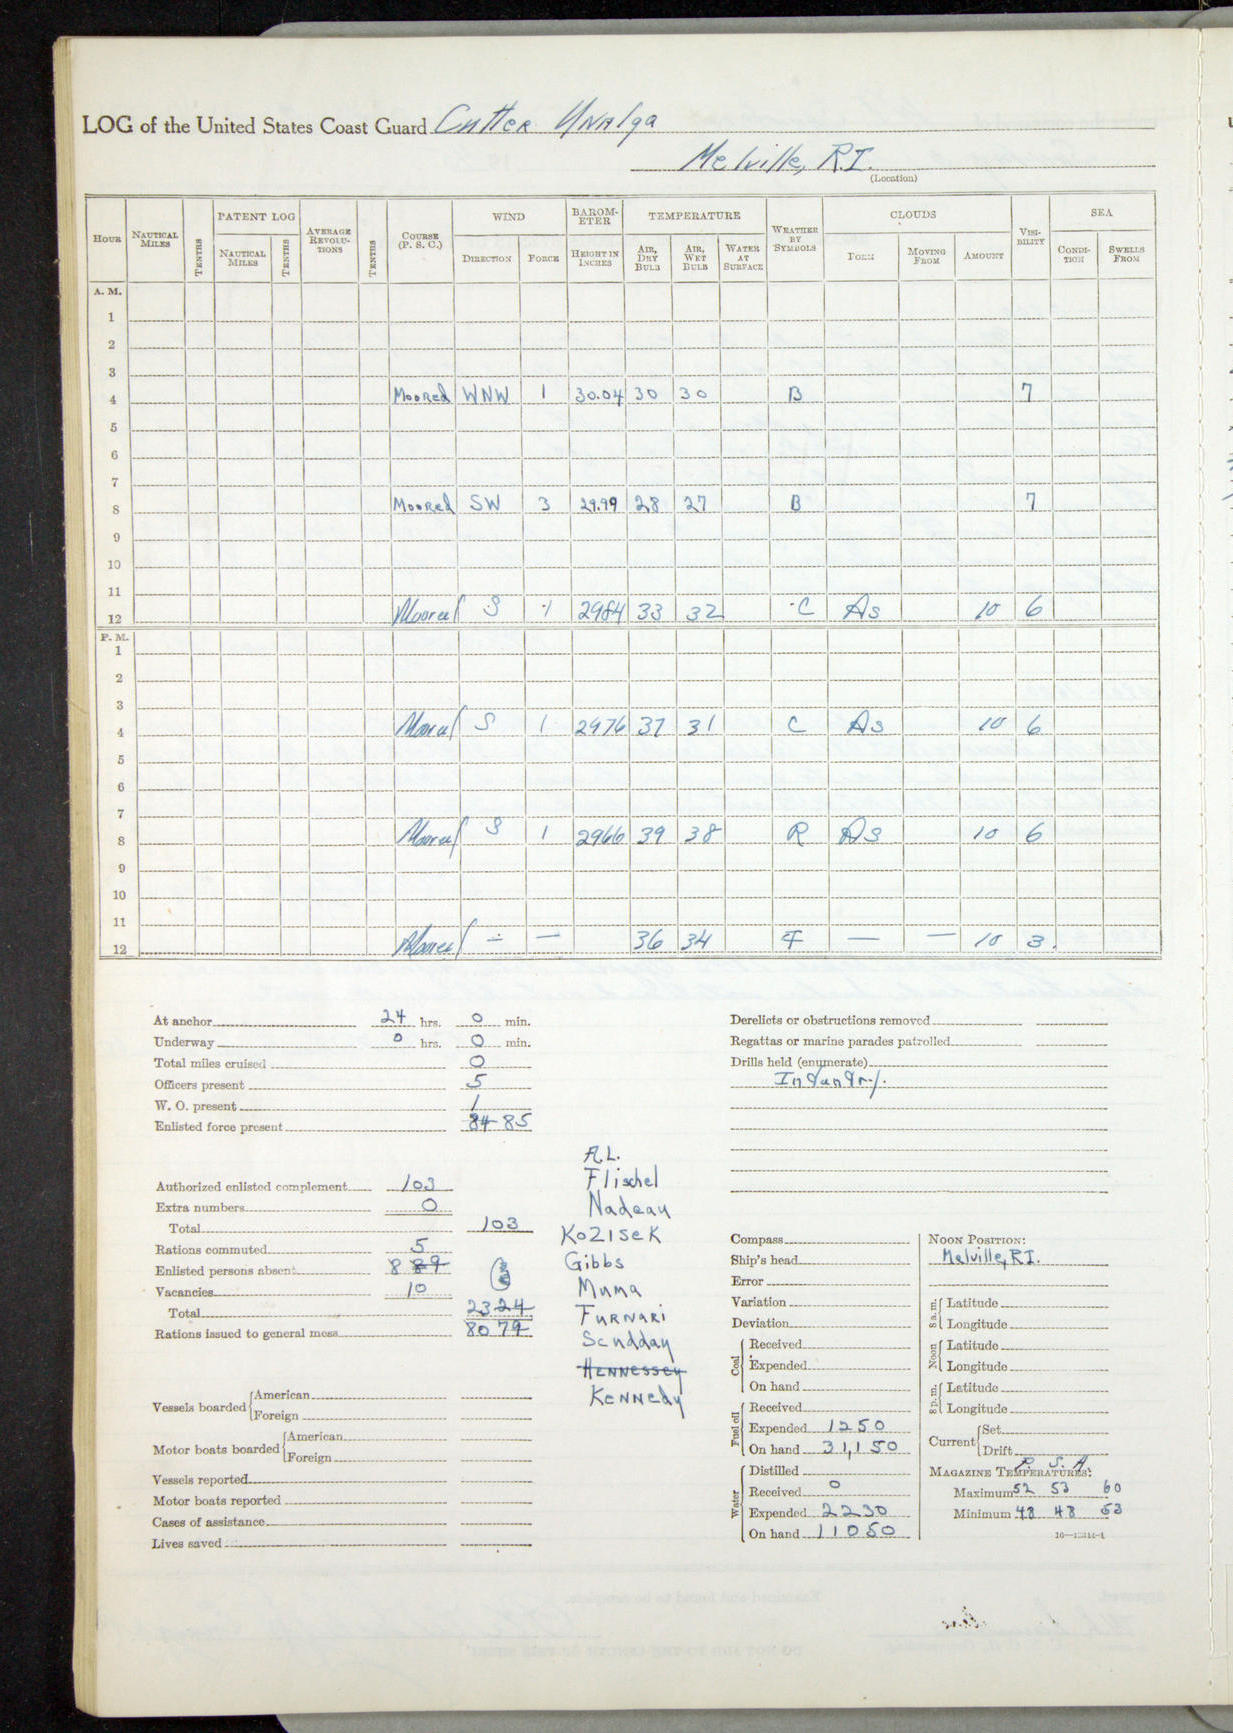 LOG of the United States Coast Guard Cutter Unalga
Melville, R.I.
(Location)
HOUR NAUTICAL MILES TENTHS PATENT LOG NAUTICAL MILES TENTHS AVERAGE REVOLU-TIONS TENTHS COURSE (P. S. C.) WIND DIRECTION FORCE BAROM-ETER HEIGHT IN INCHES TEMPERATURE AIR, DRY BULB AIR, WET BULB WATER AT SURFACE WEATHER BY SYMBOLS CLOUDS FORM MOVING FROM AMOUNT VISI-BILITY SEA CONDI-TION SWELLS FROM
A. M.
1
2
3
4 Moored WNW 1 30.04 30 30 B 7
5
6
7
8 Moored SW 3 29.99 28 27 B 7
9
10
11
12 Moored S 1 2984 33 32 C As 10 6
P. M.
1
2
3
4 Moored S 1 2976 37 31 C As 10 6
5
6
7
8 Moored S 1 2966 39 38 R As 10 6
9
10
11
12 Moored — — 36 34 F — — 10 3.
At anchor 24 hrs. 0 min.
Underway 0 hrs. 0 min.
Total miles cruised 0
Officers present 5
W. O. present 1
Enlisted force present 84 85
Authorized enlisted complement 103
Extra numbers 0
Total 103
Rations commuted 5
Enlisted persons absent 8 89
Vacancies 10
Total 23 24
Rations issued to general mess 80 79
Vessels boarded American
Foreign
Motor boats boarded American
Foreign
Vessels reported
Motor boats reported
Cases of assistance
Lives saved
A.L.
Flischel
Nadeau
Kozisek
Gibbs
Muma
Furnari
Scudday
Hennessey
Kennedy
Derelicts or obstructions removed
Regattas or marine parades patrolled
Drills held (enumerate)
Infantry.
Compass
Ship's head
Error
Variation
Deviation
Coal Received
Expended
On hand
Fuel oil Received
Expended 1250
On hand 31,150
Water Distilled
Received 0
Expended 2230
On hand 11050
NOON POSITION:
Melville, R.I.
8 a. m. Latitude
Longitude
Noon Latitude
Longitude
8 p. m. Latitude
Longitude
Current Set
Drift
P. S. A.
MAGAZINE TEMPERATURES:
Maximum 52 53 60
Minimum 48 48 53